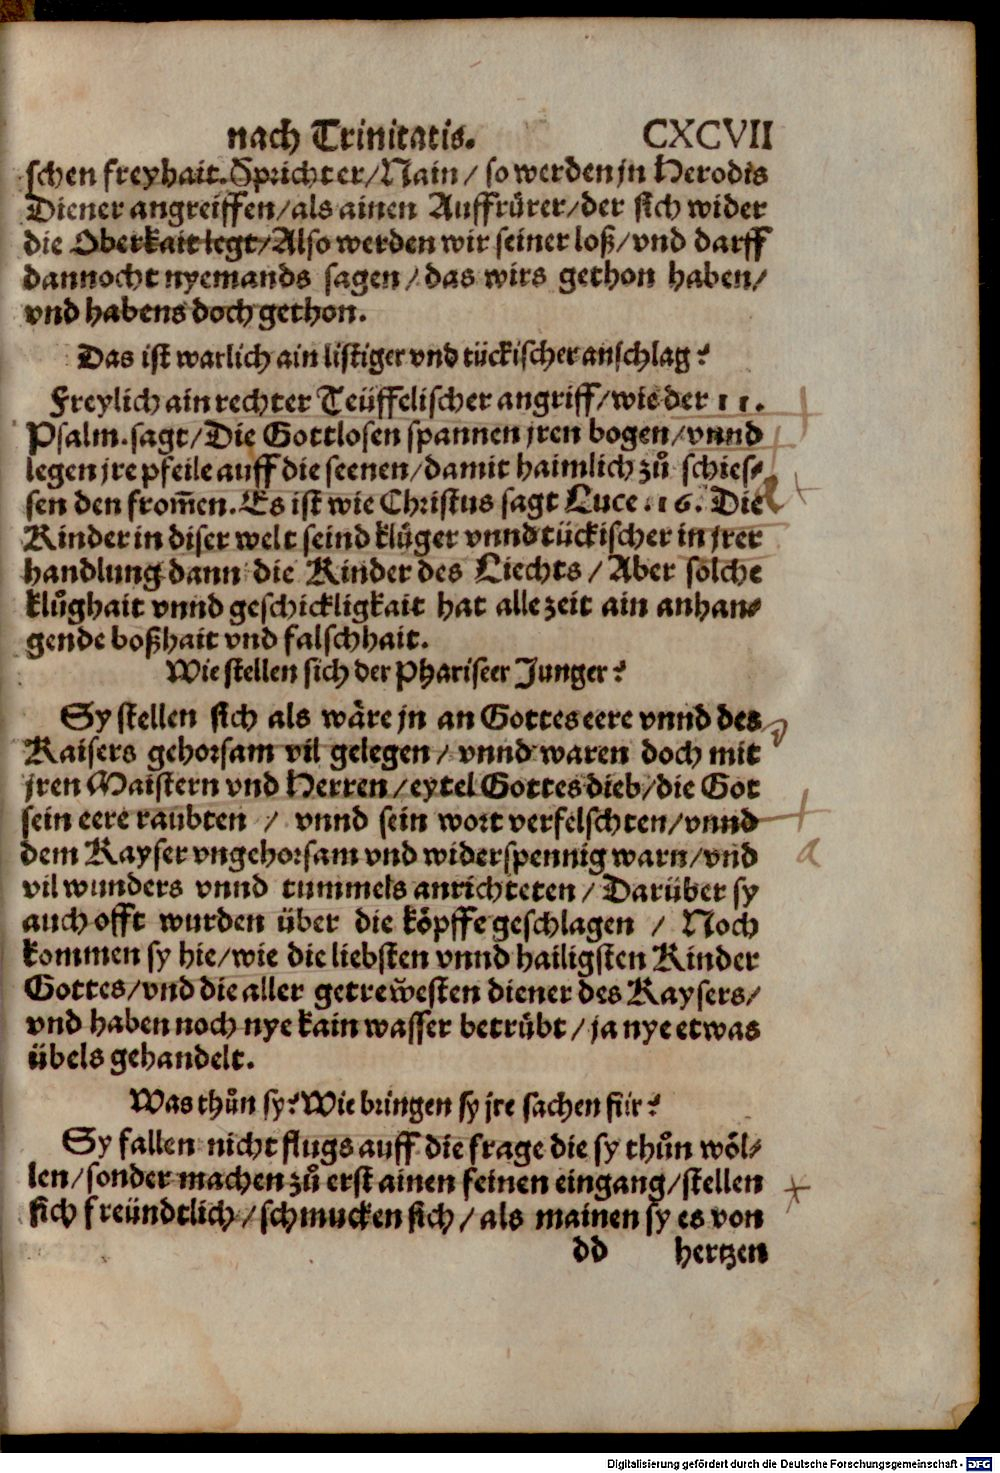 nach Trinitatis. CXCVII
schen freyhait. Spricht er/Nain/ so werden jn Herodis
Diener angreiffen/als ainen Auffrürer/der sich wider
die Oberkait legt/Also werden wir seiner loß/vnd darff
dannocht nyemands sagen/das wirs gethon haben/
vnd habens doch gethon.
Das ist warlich ain listiger vnd tückischer anschlag?
Freylich ain rechter Teüffelischer angriff/wie der 11.
Psalm. sagt/Die Gottlosen spannen jren bogen/vnnd
legen jre pfeile auff die seenen/damit haimlich zů schies-
sen den from̄en. Es ist wie Christus sagt Luce. 16. Die
Kinder in diser welt seind klůger vnnd tückischer in jrer
handlung dann die Kinder des Liechts/Aber solche
klůghait vnnd geschickligkait hat alle zeit ain anhan-
gende boßhait vnd falschhait.
Wie stellen sich der Phariseer Junger?
Sy stellen sich als wäre jn an Gottes eere vnnd des
Kaisers gehorsam vil gelegen/vnnd waren doch mit
jren Maistern vnd Herren/eytel Gottes dieb/die Got
sein eere raubten / vnnd sein wort verfelschten/vnnd
dem Kayser vngehorsam vnd widerspennig warn/vnd
vil wunders vnnd tummels anrichteten/Darüber sy
auch offt wurden über die köpffe geschlagen / Noch
kommen sy hie/wie die liebsten vnnd hailigsten Kinder
Gottes/vnd die aller getreẅesten diener des Kaysers/
vnd haben noch nye kain wasser betrübt/ja nye etwas
übels gehandelt.
Was thůn sy? Wie bringen sy jre sachen für?
Sy fallen nicht flugs auff die frage die sy thůn wöl-
len/sonder machen zů erst ainen feinen eingang/stellen
sich freündtlich/schmucken sich/als mainen sy es von
dd hertzen
Digitalisierung gefördert durch die Deutsche Forschungsgemeinschaft - DFG